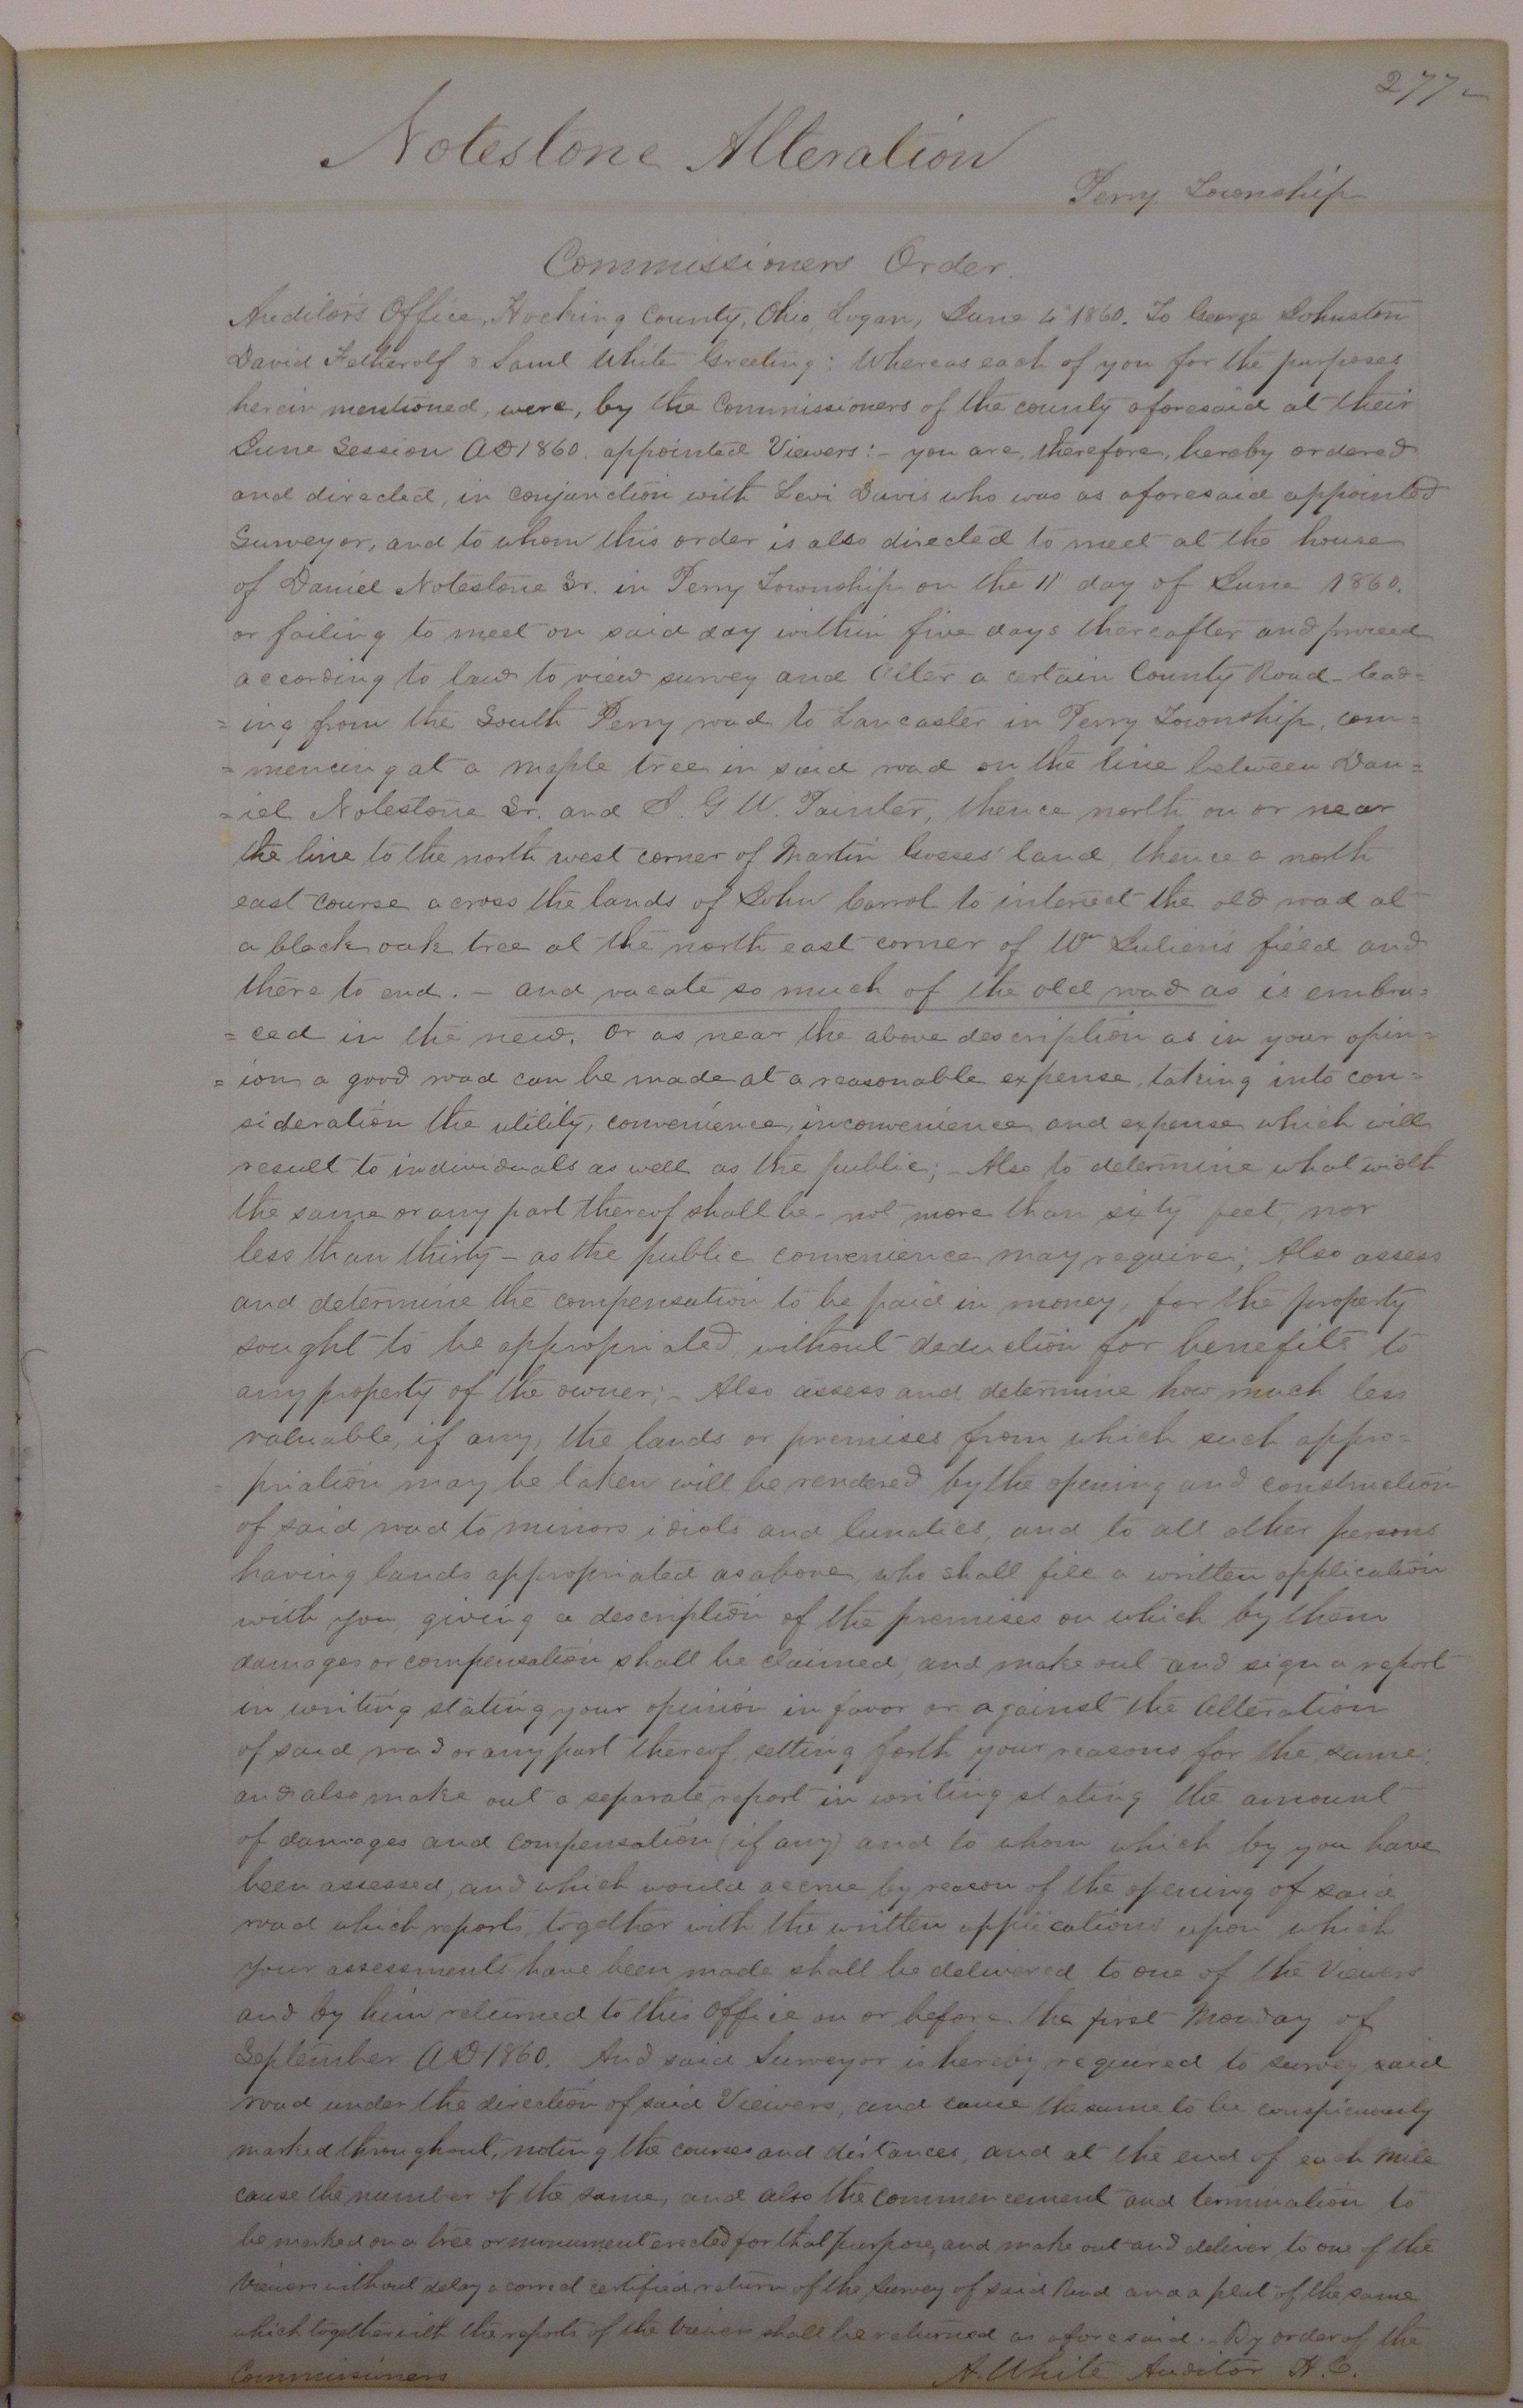 277
Notestone Alteration
Perry Township
Commissioners Order.
Auditor's Office, Hocking County, Ohio, Logan, June 4" 1860. To George Johnston
David Fetherolf & Saml White Greeting: Whereas each of you for the purposes
herein mentioned, were, by the Commissioners of the county aforesaid at their
June Session AD 1860. appointed Viewers:- you are, therefore, hereby ordered
and directed, in conjunction with Levi Davis who was as aforesaid appointed
Surveyor, and to whom this order is also directed to meet at the house
of Daniel Notestone Sr. in Perry Township on the 11" day of June 1860.
or failing to meet on said day within five days thereafter and proceed
according to law to view survey and Alter a certain County Road - lead=
=ing from the South Perry road to Lancaster in Perry Township, com=
=mencing at a maple tree in said road on the line between Dan=
=iel Notestone Sr. and G W. Painter, thence north on or near
the line to the north west corner of Martin Gosses' land, thence a north
east course across the lands of John Carrol to intersect the old road at
a black oak tree at the north east corner of Wm Julien's field and
there to end. - and vacate so much of the old road as is embra=
=ced in the new. or as near the above description as in your opin=
=ion a good road can be made at a reasonable expense, taking into con=
sideration the utility, convenience, inconvenience and expense which will
result to individuals as well as the public; - Also to determine what width
the same or any part thereof shall be - not more than sixty feet, nor
less than thirty - as the public convenience may require; Also assess
and determine the compensation to be paid in money, for the property
sought to be appropriated, without deduction for benefits to
any property of the owner; - Also assess and determine how much less
valuable, if any, the lands or premises from which such appro=
=priation may be taken will be rendered by the opening and construction
of said road to minors idiots and lunatics, and to all other persons
having lands appropriated as above, who shall file a written application
with you, giving a description of the premises on which by them
damages or compensation shall be claimed, and make out and sign a report
in writing stating your opinion in favor or against the Alteration
of said road or any part thereof, setting forth your reasons for the same;
and also make out a separate report in writing stating the amount
of damages and compensation (if any) and to whom which by you have
been assessed, and which would accrue by reason of the opening of said
road which reports, together with the written applications upon which
your assessments have been made shall be delivered to one of the Viewers
and by him returned to this Office on or before the first Monday of
September AD 1860. And said Surveyor is hereby required to survey said
road under the direction of said Viewers, and cause the same to be conspicuously
marked throughout, noting the courses and distances, and at the end of each mile
cause the number of the same, and also the commencement and termination to
be marked on a tree or monument erected for that purpose, and make out and deliver to one of the
Viewers without delay a correct certified return of the Survey of said Road and a plat of the same
which together with the reports of the Viewers shall be returned as aforesaid. - By order of the
Commissioners
A. White Auditor H. C.